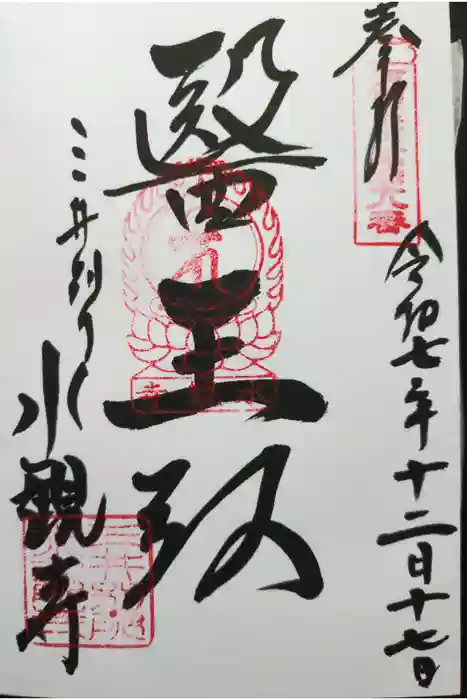 奉拝
令和七年十二月十七日
醫王殿
三井別所
水観寺